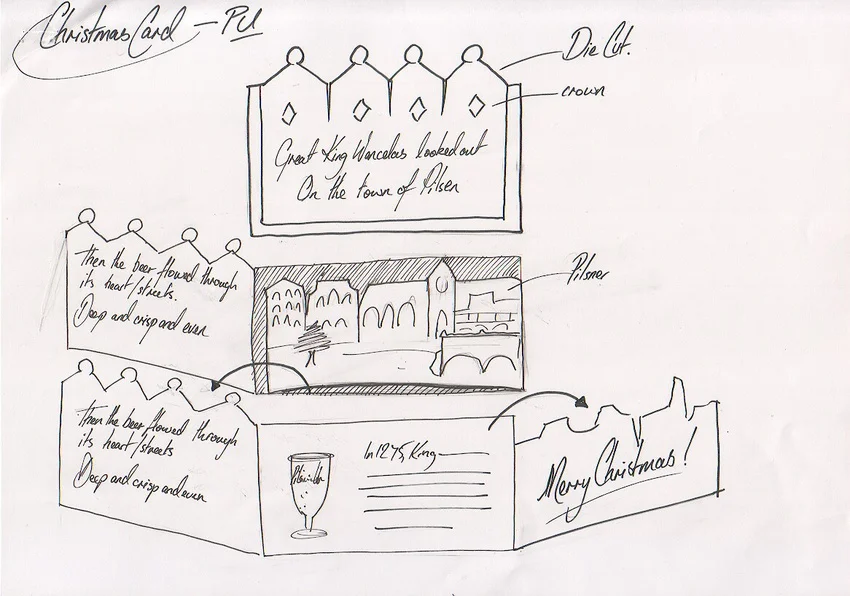 Christmas Card - PU
Die Cut.
crown
Great King Wancelas looked out
On the town of Pilsen
Then the beer flowed through
its heart/streets.
Deep and crisp and even
Pilsner
Then the beer flowed through
its heart/streets
Deep and crisp and even
In 1275, King
Merry Christmas!